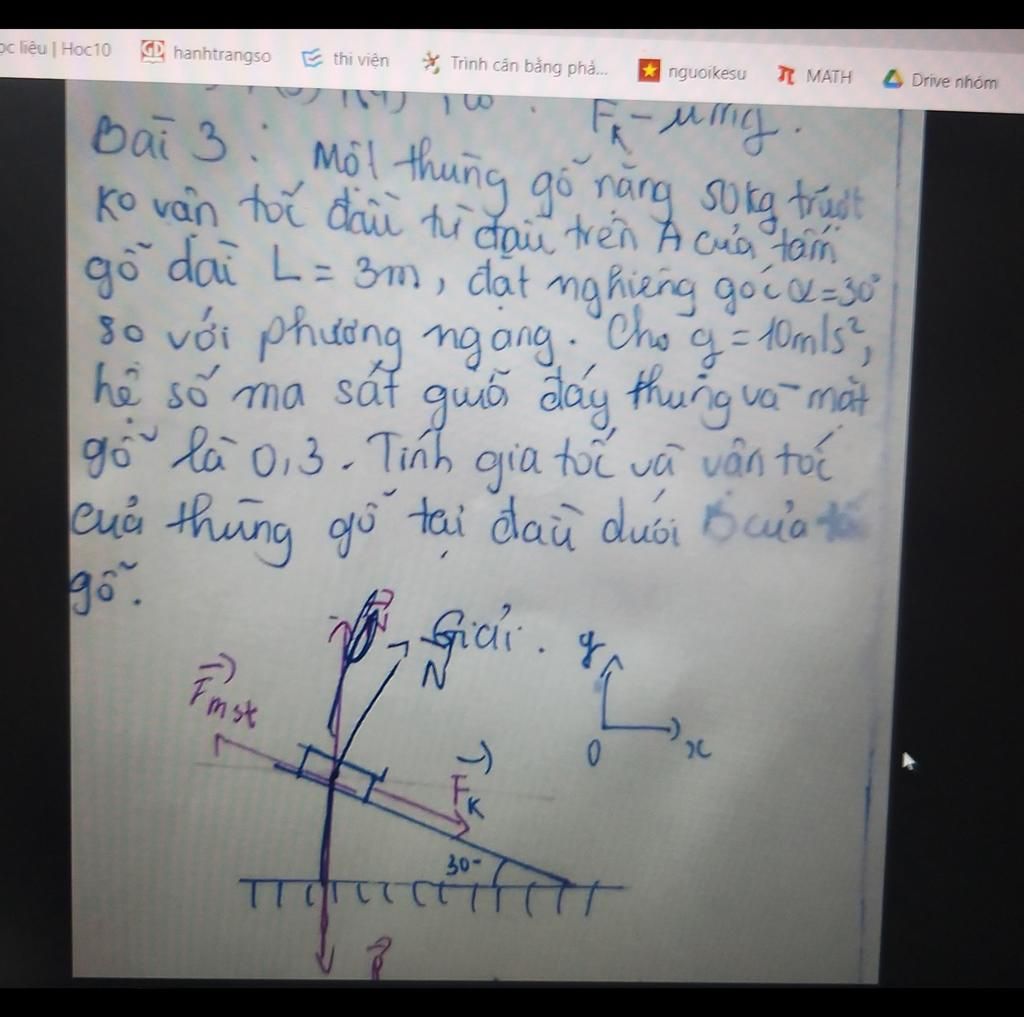 ọc liệu | Hoc10 hanhtrangso thi viện Trình cân bằng phả... nguoikesu MATH Drive nhóm
F_k - μmg.
Bài 3: Một thùng gỗ nặng 50kg trượt
ko vận tốc đầu từ đầu trên A của tấm
gỗ dài L = 3m, đặt nghiêng góc α = 30°
so với phương ngang. Cho g = 10m/s²,
hệ số ma sát giữa đáy thùng và mặt
gỗ là 0,3. Tính gia tốc và vận tốc
của thùng gỗ tại đầu dưới B của
gỗ.
Giải.
N
y
F_mst
O x
F_k
30°
P